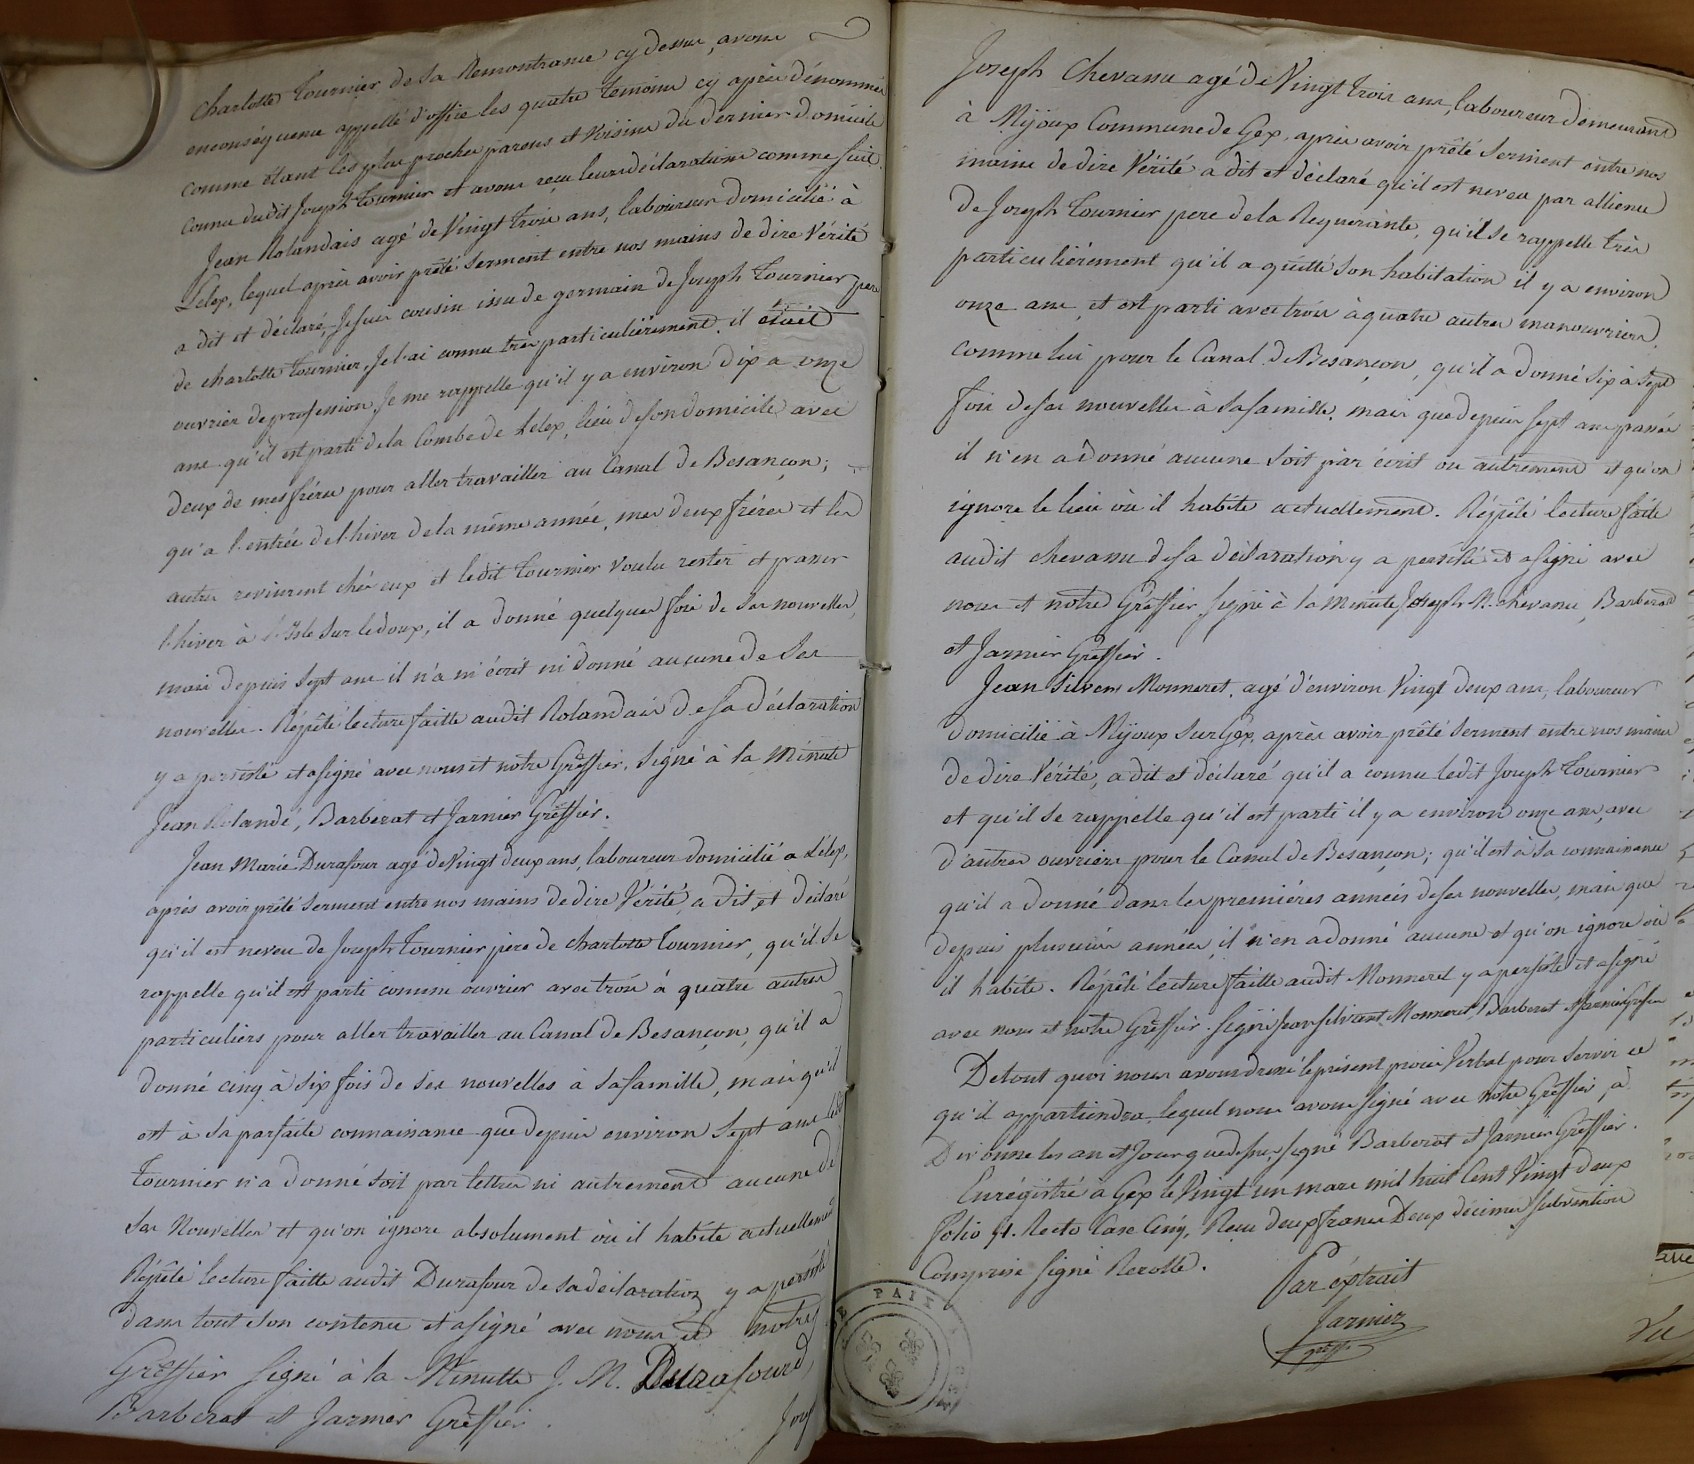 Charlotte Tournier de sa Remontrance cy dessus, avons
en conséquence appellé d'office les quatre temoins cy après dénommés
comme étant les plus proches parens et voisins du dernier domicile
connu dudit Joseph Tournier et avons reçu leurs déclarations comme suit.
Jean Rolandais agé de Vingt trois ans, laboureur domicilié à
Lelex, lequel après avoir prêté serment entre nos mains de dire Vérité
a dit et déclaré, Je suis cousin issu de germain de Joseph Tournier pere
de charlotte Tournier, Je l'ai connu très particuliérement, il était
ouvrier de profession, Je me rappelle qu'il y a environ dix a onze
ans qu'il est parti de la Combe de Lelex, lieu de son domicile avec
deux de mes frères pour aller travailler au Canal de Besançon;
qu'a l'entrée de l'hiver de la même année, mes deux frères et les
autres revinrent chés eux et ledit Tournier voulu rester et passer
l'hiver à l'Isle sur le doux, il a donné quelques fois de ses nouvelles,
mais depuis sept ans il n'a ni écrit ni donné aucune de ses
nouvelles. Répété lecture faitte audit Rolandais de sa déclaration
y a persisté et a signé avec nous et notre Greffier. Signé à la Minute
Jean Rolande, Barberat et Jarnier Greffier.
Jean Marie Durafour agé de Vingt deux ans, laboureur domicilié a Lélex,
après avoir prêté serment entre nos mains de dire Vérité, a dit et déclaré
qu'il est neveu de Joseph Tournier père de charlotte Tournier, qu'il se
rappelle qu'il est parti comme ouvrier avec trois à quatre autres
particuliers pour aller travailler au Canal de Besançon, qu'il a
donné cinq à six fois de ses nouvelles à sa famille, mais qu'il
est à sa parfaite connaissance que depuis environ sept ans ledit
Tournier n'a donné soit par lettres ni autrement aucune de
ses Nouvelles et qu'on ignore absolument où il habite actuellement
Répété lecture faitte audit Durafour de sa déclaration y a persisté
dans tout son contenu et a signé avec nous et notre
Greffier Signé à la Minutte J. M. Durafourd
Barberat et Jarnier Greffier.
Josep
Joseph Chevassu agé de Vingt trois ans, laboureur demeurant
à Mijoux Commune de Gex, après avoir prêté serment entre nos
mains de dire Vérité a dit et déclaré qu'il est neveu par allience
de Joseph Tournier pere de la Requerante, qu'il se rappelle très
particuliérement qu'il a quitté son habitation il y a environ
onze ans, et est parti avec trois à quatre autres manouvriers
comme lui pour le Canal de Besançon, qu'il a donné six à sept
fois de ses nouvelles à sa famille, mais que depuis sept ans passés
il n'en a donné aucune soit par écrit ou autrement et qu'on
ignore le lieu où il habite actuellement. Répété lecture faite
audit chevassu de sa déclaration y a persisté et a signé avec
nous et notre Greffier signé à la Minute Joseph M. chevassu, Barberat
et Jarnier Greffier.
Jean Silvens Monneret, agé d'environ Vingt deux ans, laboureur
domicilié à Mijoux sur Gex, après avoir prêté serment entre nos mains
de dire Vérité, a dit et déclaré qu'il a connu ledit Joseph Tournier
et qu'il se rappelle qu'il est parti il y a environ onze ans, avec
d'autres ouvriers pour le Canal de Besançon; qu'il est à sa connaissance
qu'il a donné dans les premières années de ses nouvelles, mais que
depuis plusieurs années, il n'en a donné aucune et qu'on ignore où
il habite. Répété lecture faitte audit Monneret y a persisté et a signé
avec nous et notre Greffier. Signé Jean Silvent Monneret, Barberat et Jarnier Greffier
De tout quoi nous avons dressé le présent procès Verbal pour servir ce
qu'il appartiendra lequel nous avons signé avec notre Greffier, à
Divonne les an et Jour que dessus, signé Barberat et Jarnier Greffier.
Enrégistré à Gex le Vingt un mars mil huit Cent Vingt deux
folio 91. Recto Case Cinq, Reçu deux francs Deux décimes subvention
Comprise signé Rerolle.
Par extrait
Jarnier
greff.
PAIX
Vu